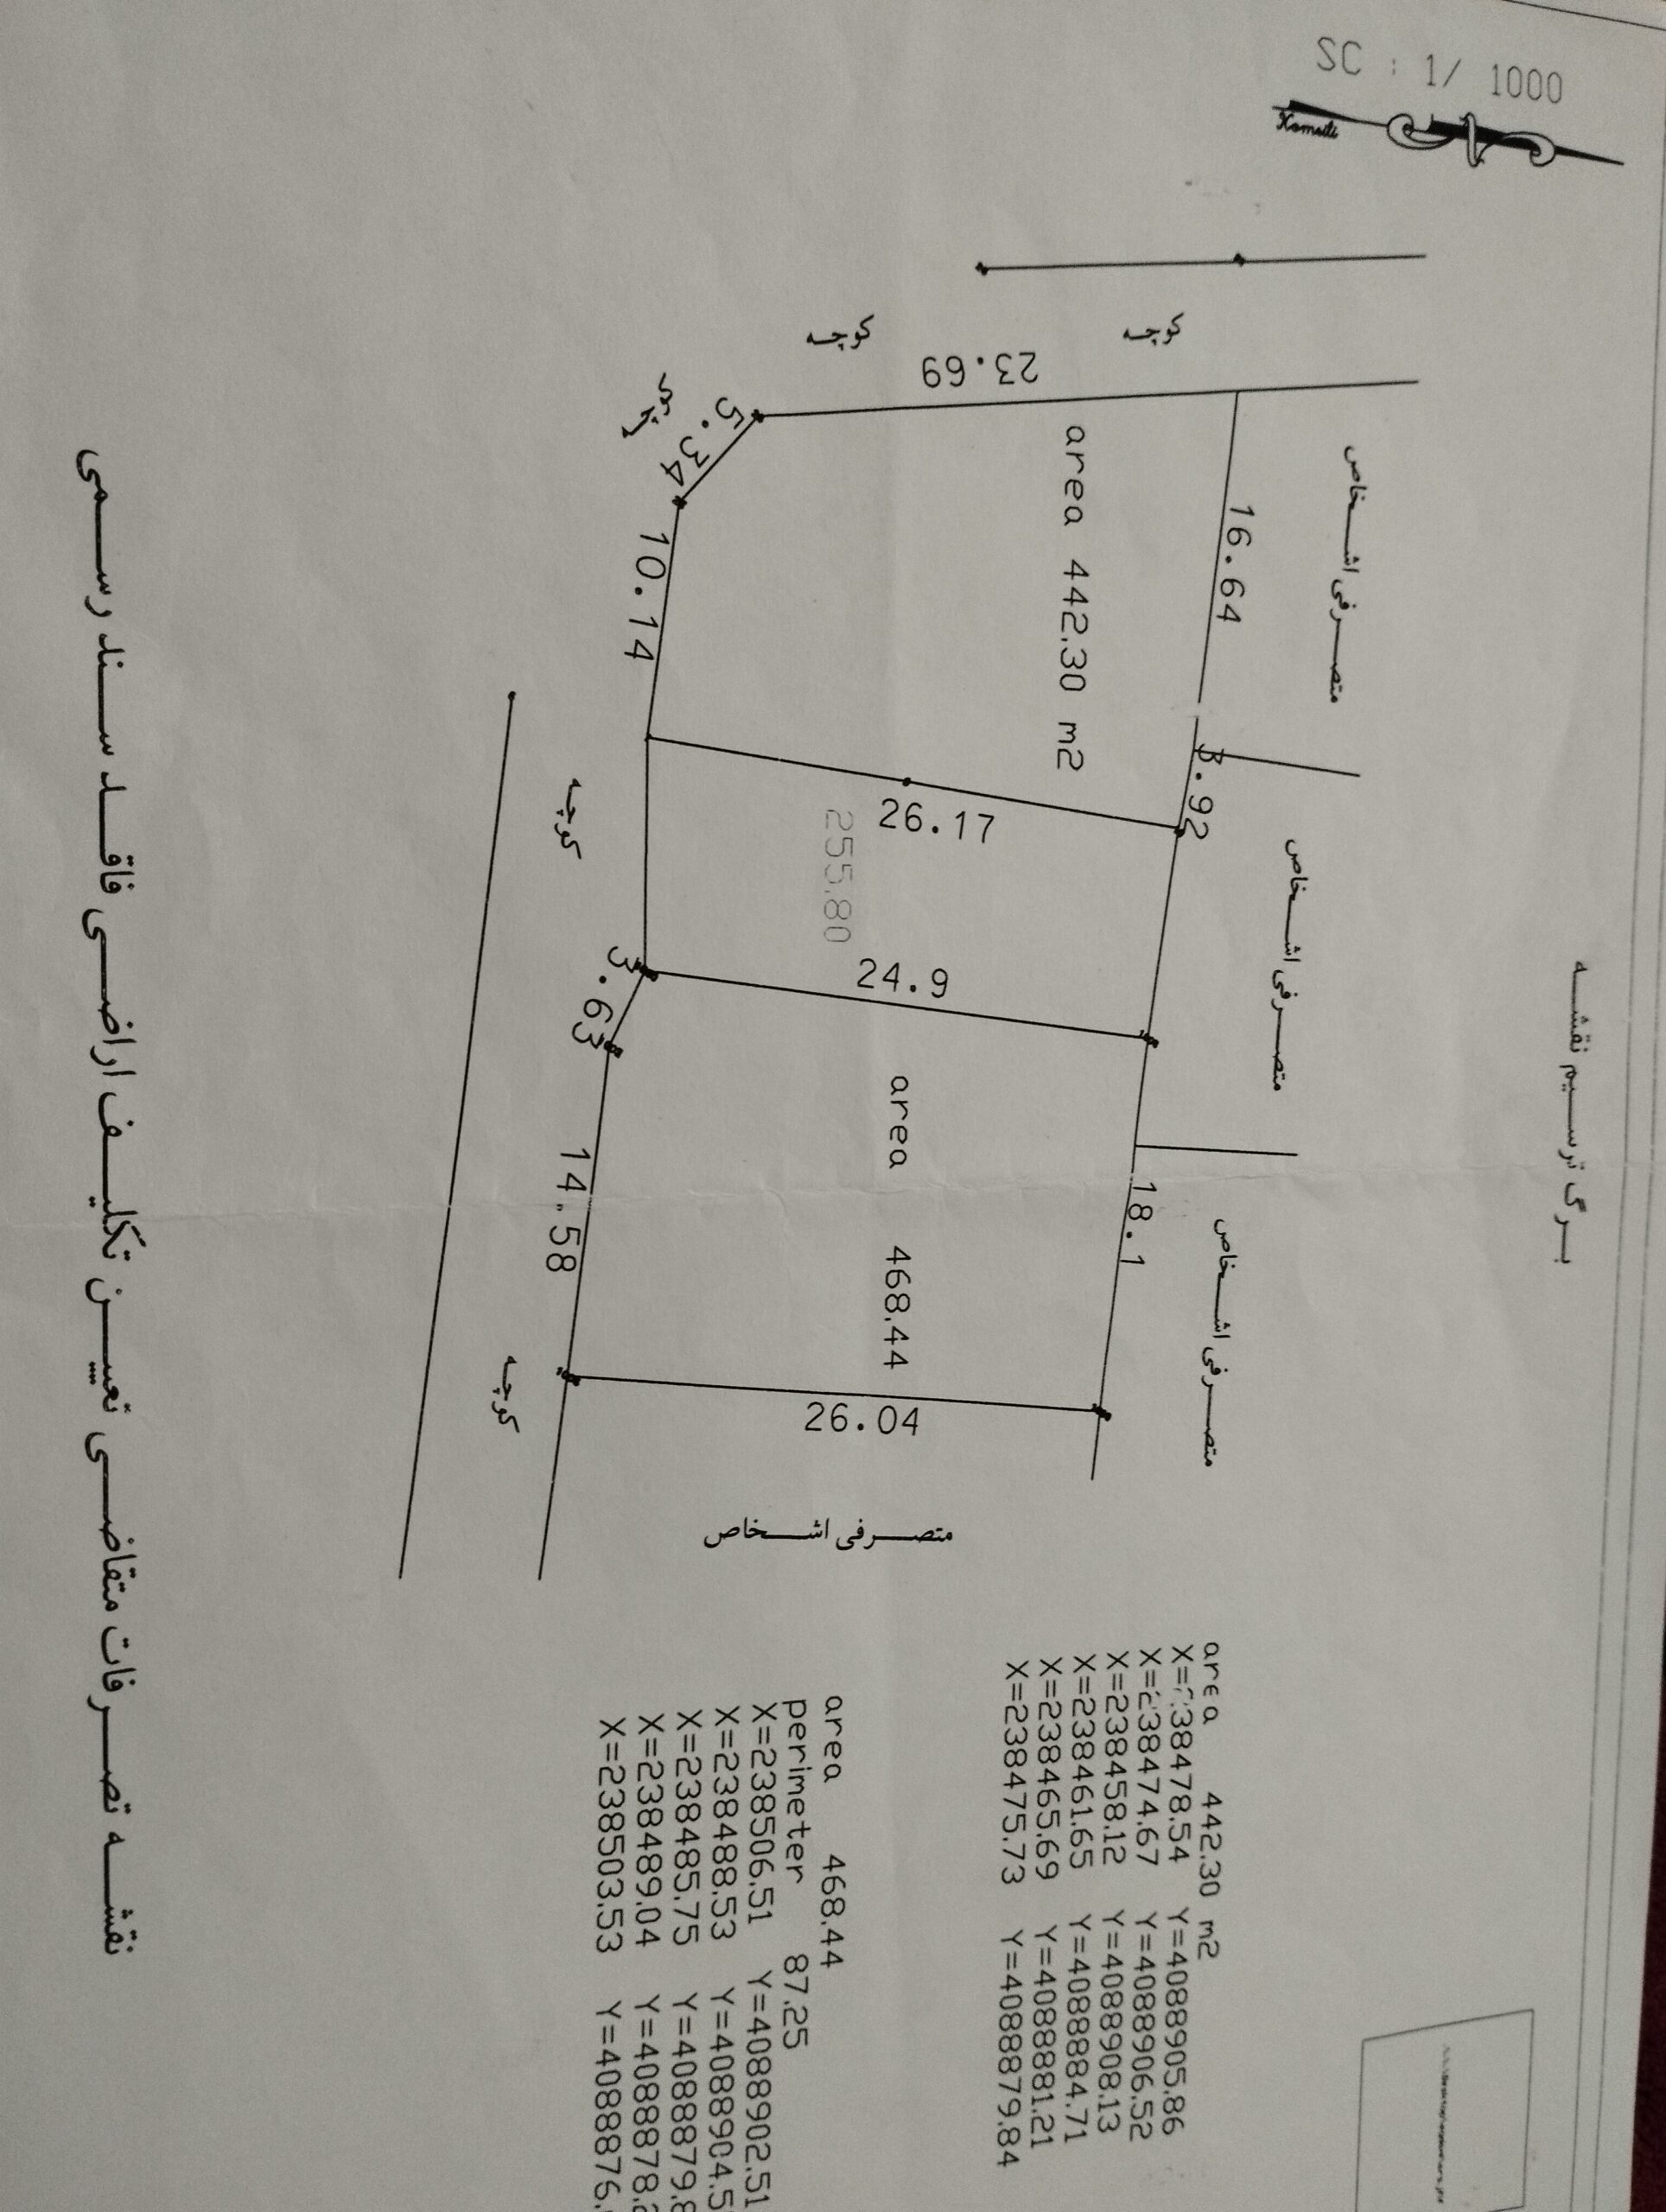 برگ ترسیم نقشه
SC : 1/ 1000
Kamali
متصرفی اشخاص
متصرفی اشخاص
متصرفی اشخاص
16.64
3.92
18.1
کوچه
کوچه
23.69
area 442.30 m2
26.17
255.80
24.9
area 468.44
26.04
متصرفی اشخاص
5.34
10.14
3.63
14.58
کوچه
کوچه
area 442.30 m2
X=238478.54 Y=4088905.86
X=238474.67 Y=4088906.52
X=238458.12 Y=4088908.13
X=238461.65 Y=4088884.71
X=238465.69 Y=4088881.21
X=238475.73 Y=4088879.84
area 468.44
perimeter 87.25
X=238506.51 Y=4088902.51
X=238488.53 Y=4088904.5
X=238485.75 Y=4088879.8
X=238489.04 Y=4088878.2
X=238503.53 Y=4088876.
نقشه تصرفات متقاضی تعیین تکلیف اراضی فاقد سند رسمی